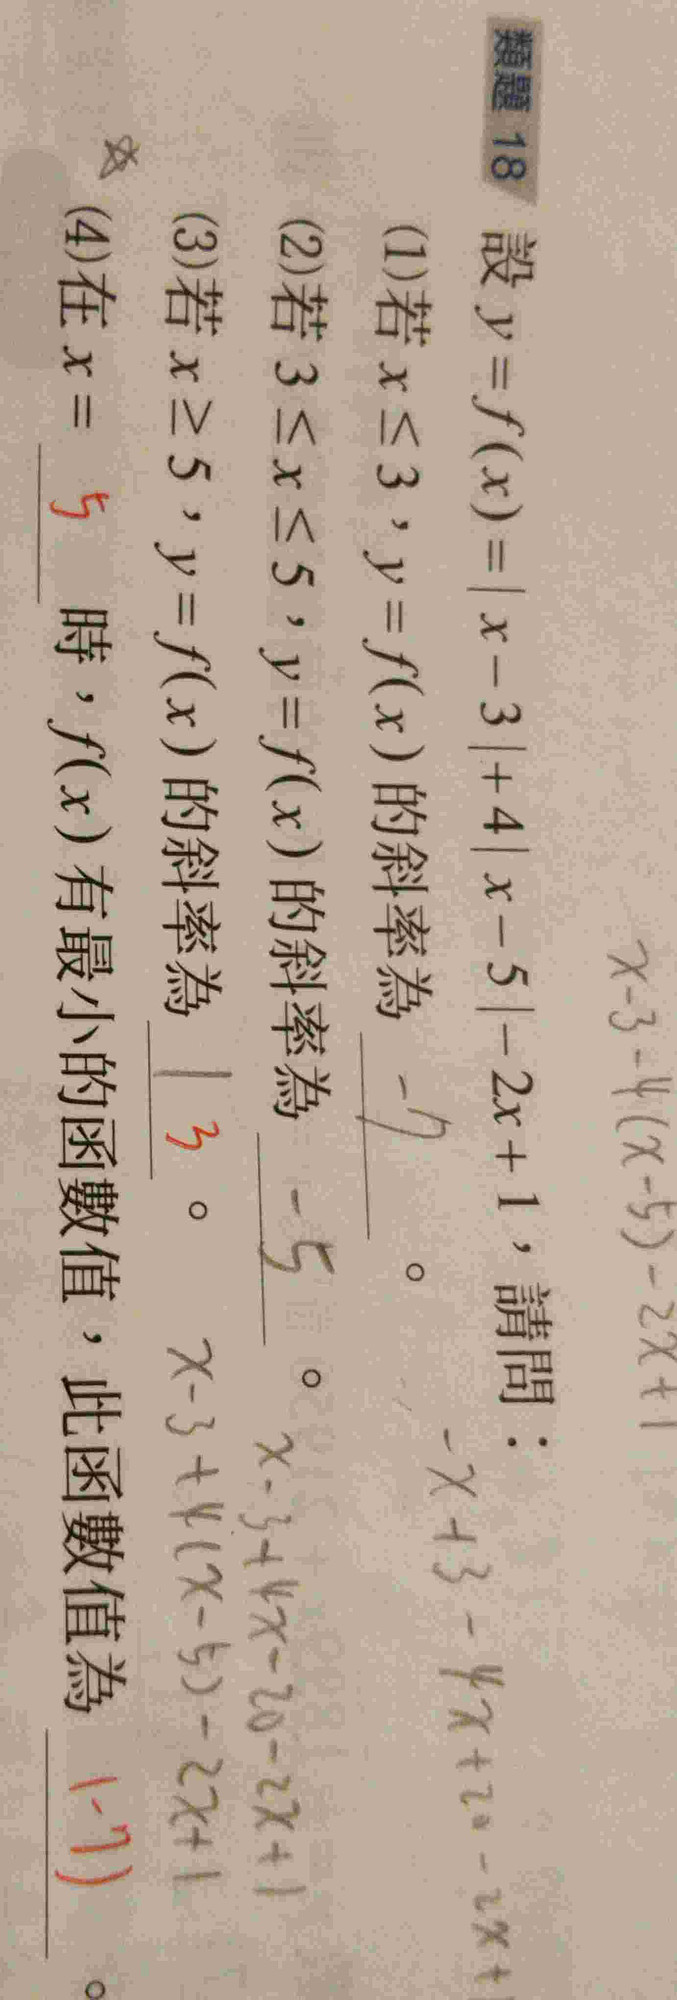 x-3-4(x-5)-2x+1
類題 18 設 y=f(x)=|x-3|+4|x-5|-2x+1，請問：
(1)若 x≤3，y=f(x)的斜率為 -7 。
-x+3-4x+20-2x+1
(2)若 3≤x≤5，y=f(x)的斜率為 -5 。
x-3+4x-20-2x+1
(3)若 x≥5，y=f(x)的斜率為 3 。
x-3+4(x-5)-2x+1
(4)在 x= 5 時，f(x)有最小的函數值，此函數值為 (-7) 。